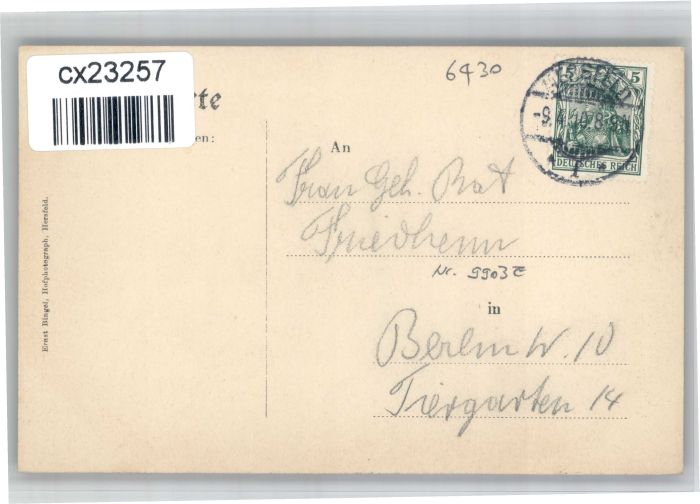 cx23257
6430
rte
en:
5 5
HERSFELD
-9.4.10.8-9V.
1
DEUTSCHES REICH
An
Frau Geh. Rat
Friedhenn
Nr. 9903E
in
Berlin W. 10
Tiergarten 14
Ernst Bingel, Hofphotograph, Hersfeld.